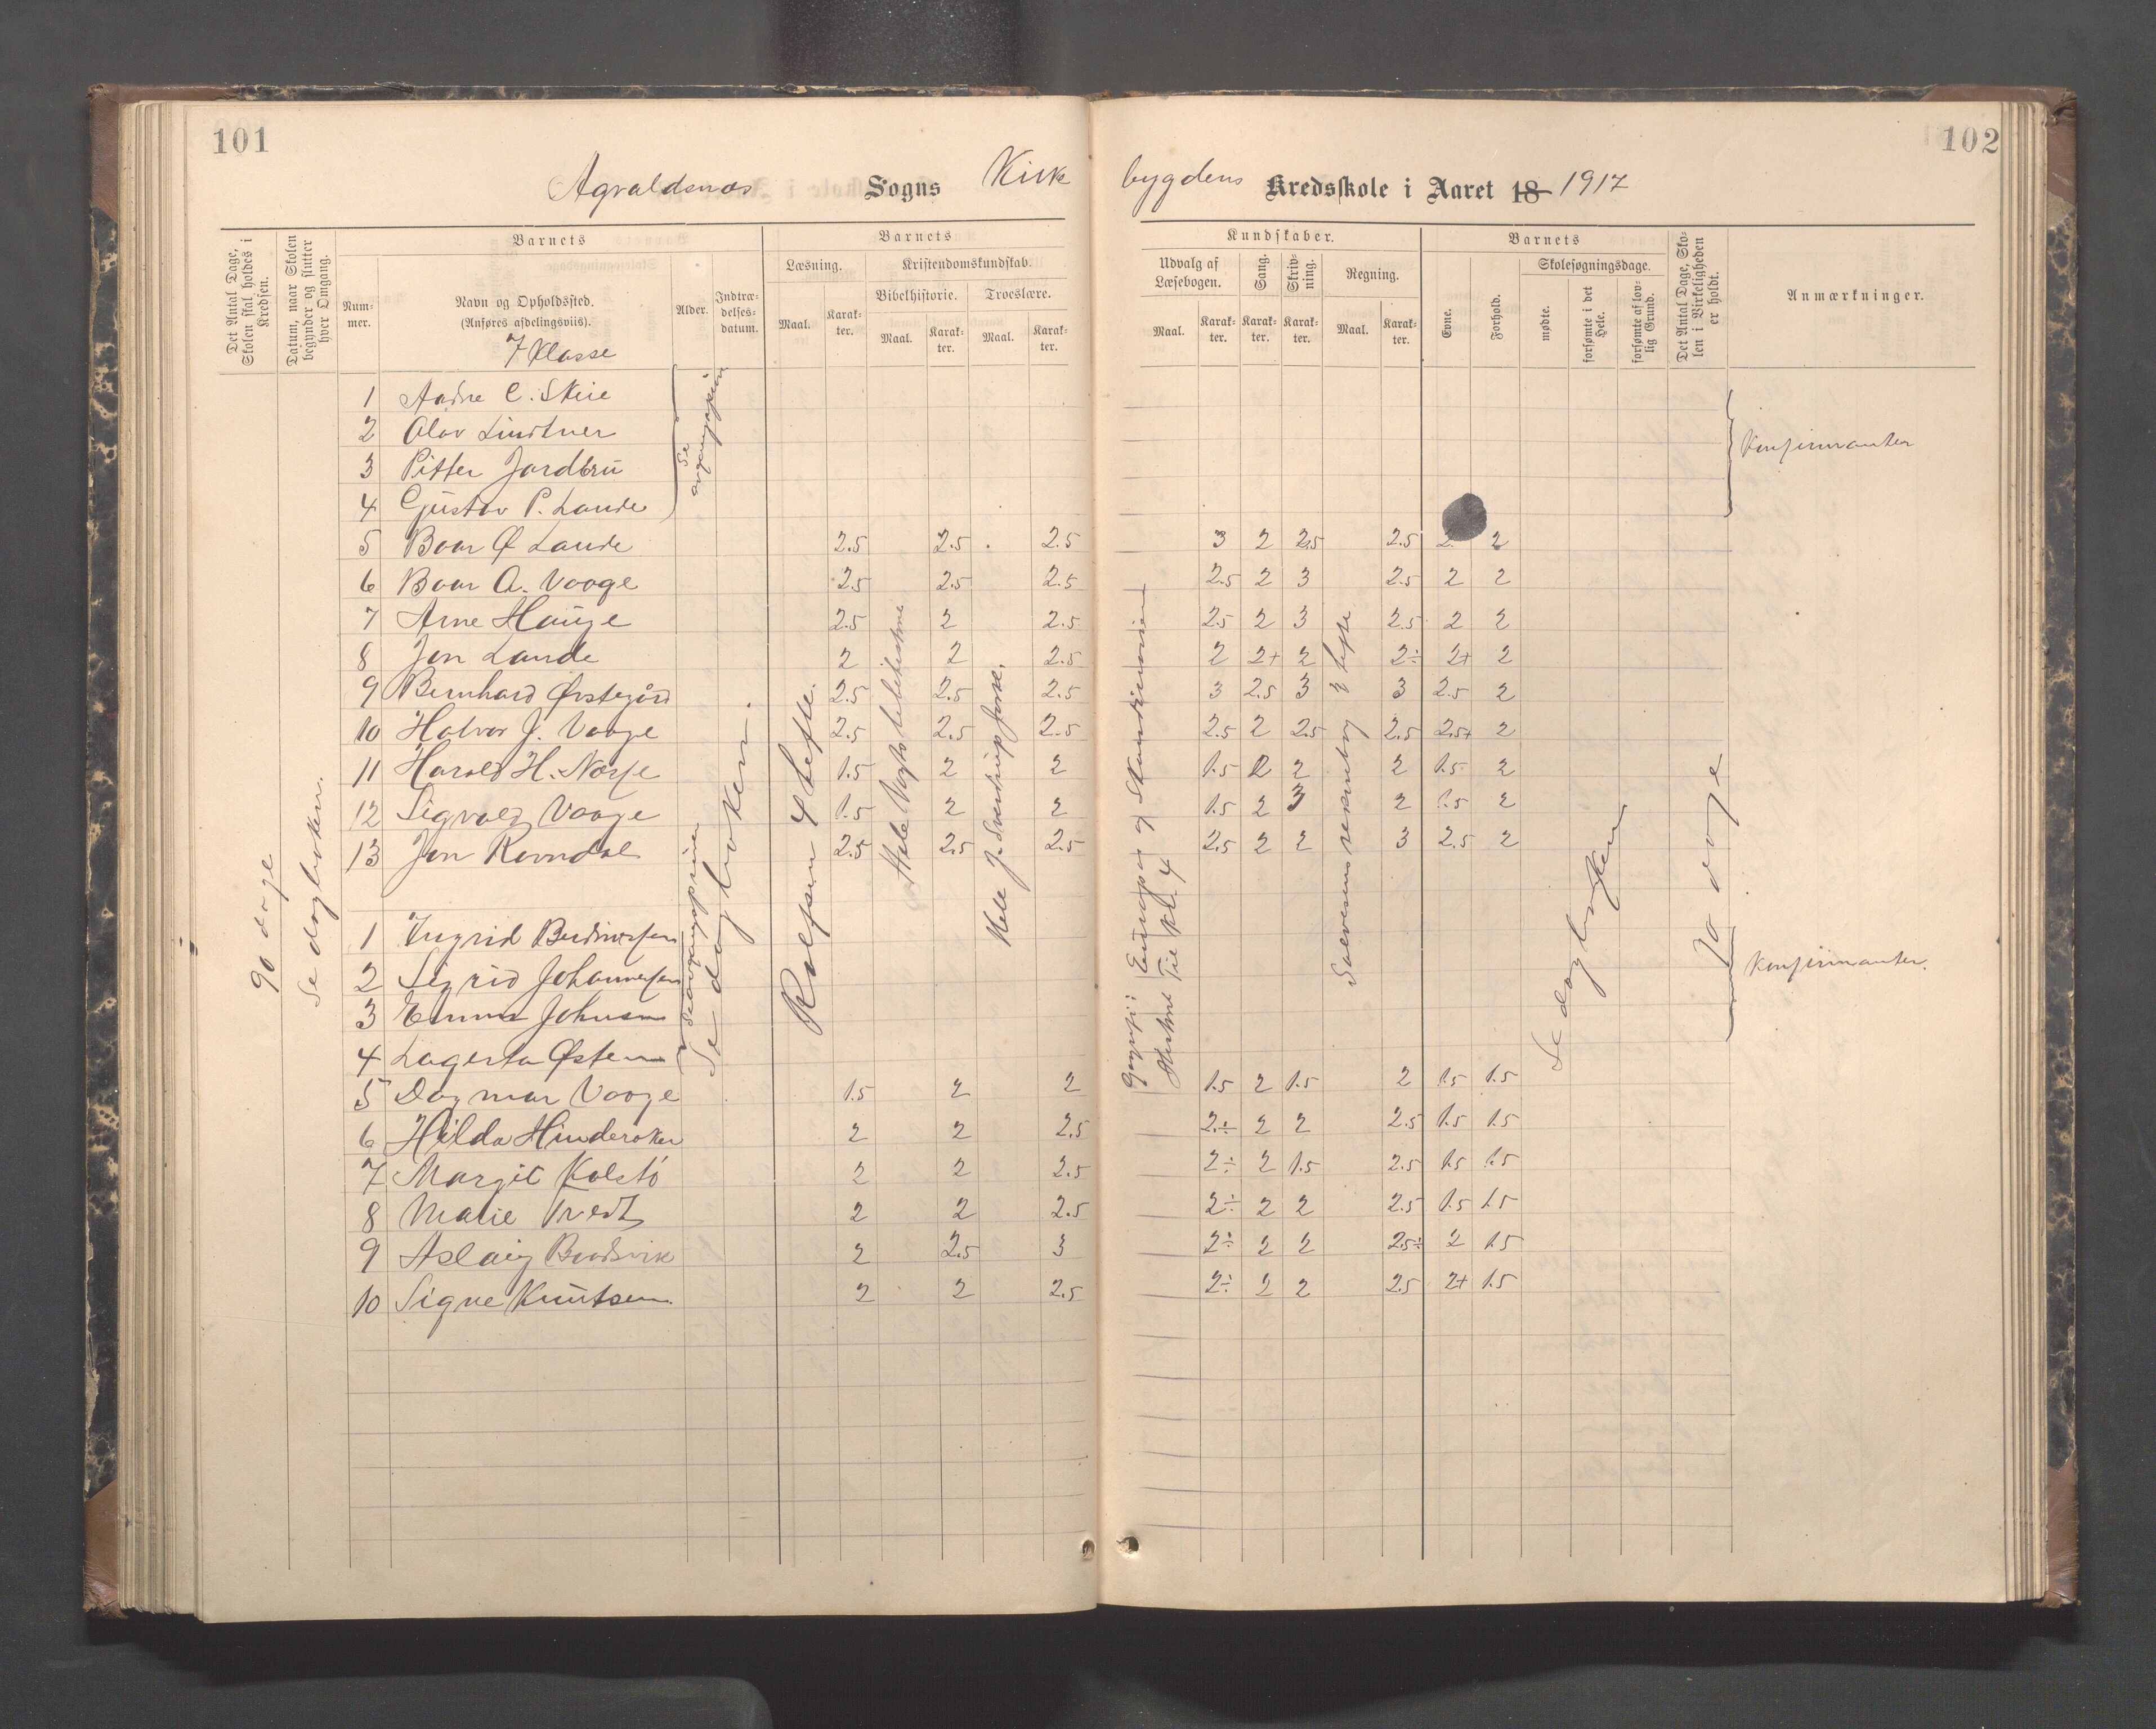 101
102
Agvaldsnes Sogns Kirkebygdens Kredsskole i Aaret 18 1917
Det Antal Dage, Skolen skal holdes i Kredsen.
Datum, naar Skolen begynder og slutter hver Omgang.
Barnets
Num-mer.
Navn og Opholdssted.
(Anføres afdelingsviis).
7 Klasse
Alder.
Indtræ-delses-datum.
Barnets
Læsning.
Maal.
Karak-ter.
Kristendomskundskab.
Bibelhistorie.
Maal.
Karak-ter.
Troeslære.
Maal.
Karak-ter.
Kundskaber.
Udvalg af Læsebogen.
Maal.
Karak-ter.
Sang.
Karak-ter.
Skriv-ning.
Karak-ter.
Regning.
Maal.
Karak-ter.
Barnets
Evne.
Forhold.
Skolesøgningsdage.
mødte.
forsømte i det Hele.
forsømte af lov-lig Grund.
Det Antal Dage, Sko-len i Virkeligheden er holdt.
Anmærkninger.
1 Andre C. Skeie
2 Olav Lindtner
3 Pitter Jordbru
4 Gustav P. Lande
Konfirmanter
5 Boar Ø Lande 2.5 2.5 2.5 3 2 2.5 2.5 2 2
6 Boar A. Vaage 2.5 2.5 2.5 2.5 2 3 2.5 2 2
7 Arne Hauge 2.5 2 2.5 2.5 2 3 2.5 2 2
8 Jon Lande 2 2 2.5 2 2+ 2 2÷ 2+ 2
9 Bernhard Østegård 2.5 2.5 2.5 3 2.5 3 3 2.5 2
10 Halvor J. Vaage 2.5 2.5 2.5 2.5 2 2.5 2.5 2.5+ 2
11 Harald H. Norse 1.5 2 2 1.5 2 2 2 1.5 2
12 Sigvald Vaage 1.5 2 2 1.5 2 3 2 1.5 2
13 Jon Ravndal 2.5 2.5 2.5 2.5 2 2 3 2.5 2
1 Ingrid
2 Sigrid Johannesen
3 Emma Johnsen
4 Lagerta Østen
Konfirmanter.
5 Dagmar Vaage 1.5 2 2 1.5 2 1.5 2 1.5 1.5
6 Hilda Hinderaker 2 2 2.5 2÷ 2 2 2.5 1.5 1.5
7 Margit Kolstø 2 2 2.5 2÷ 2 1.5 2.5 1.5 1.5
8 Marie Tvedt 2 2 2.5 2÷ 2 2 2.5 1.5 1.5
9 Aslaug Bودsvik 2 2.5 3 2÷ 2 2 2.5÷ 2 1.5
10 Signe Knutsen. 2 2 2.5 2÷ 2 2 2.5 2+ 1.5
90 dage
Se dagboken.
Se avgangsprøven
Se avgangsprøven
Se dagboken.
Rolfsen 4 hefte.
Hele Vogts bibelhistorie
Hele J. Sverdrups fork.
Geografi: Europa og Skandinavien
Historie Til kl. 4
Salvesens regnebog 3 hefte
Se dagboken
90 dage